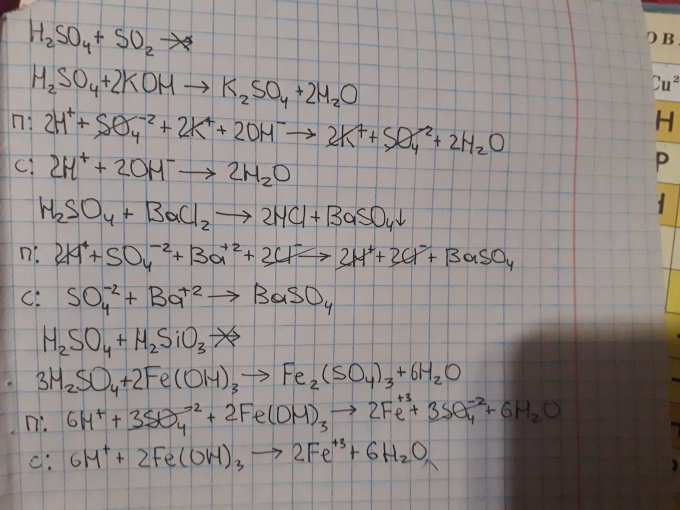 H₂SO₄ + SO₂ ↛
H₂SO₄+2KOH → K₂SO₄ +2H₂O
п: 2H⁺ + SO₄⁻² + 2K⁺ + 2OH⁻ → 2K⁺ + SO₄⁻² + 2H₂O
с: 2H⁺ + 2OH⁻ → 2H₂O
H₂SO₄ + BaCl₂ → 2HCl + BaSO₄↓
п: 2H⁺ + SO₄⁻² + Ba⁺² + 2Cl⁻ → 2H⁺ + 2Cl⁻ + BaSO₄
с: SO₄⁻² + Ba⁺² → BaSO₄
H₂SO₄ + H₂SiO₃ ↛
3H₂SO₄+2Fe(OH)₃ → Fe₂(SO₄)₃ +6H₂O
п: 6H⁺ + 3SO₄⁻² + 2Fe(OH)₃ → 2Fe⁺³ + 3SO₄⁻² + 6H₂O
с: 6H⁺ + 2Fe(OH)₃ → 2Fe⁺³ + 6H₂O
ОВ
Cu²
Н
Р
Н